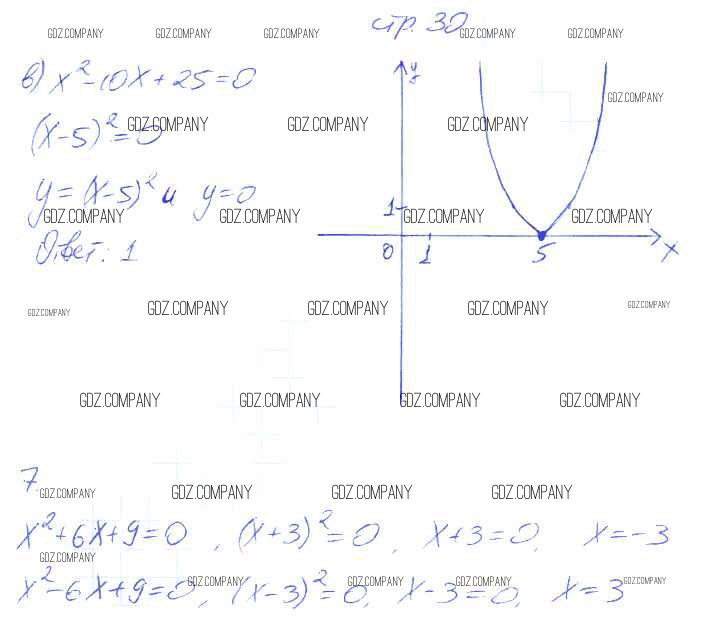 стр. 30
GDZ.COMPANY GDZ.COMPANY GDZ.COMPANY GDZ.COMPANY GDZ.COMPANY
в) x² - 10x + 25 = 0
y
GDZ.COMPANY
(x - 5)² = 0
GDZ.COMPANY GDZ.COMPANY GDZ.COMPANY
y = (x - 5)² и y = 0
1
GDZ.COMPANY GDZ.COMPANY GDZ.COMPANY GDZ.COMPANY
Ответ: 1
0 1 5 x
GDZ.COMPANY GDZ.COMPANY GDZ.COMPANY GDZ.COMPANY GDZ.COMPANY
GDZ.COMPANY GDZ.COMPANY GDZ.COMPANY GDZ.COMPANY
7
GDZ.COMPANY GDZ.COMPANY GDZ.COMPANY GDZ.COMPANY
x² + 6x + 9 = 0, (x + 3)² = 0, x + 3 = 0, x = -3
GDZ.COMPANY
x² - 6x + 9 = 0, (x - 3)² = 0, x - 3 = 0, x = 3
GDZ.COMPANY GDZ.COMPANY GDZ.COMPANY GDZ.COMPANY